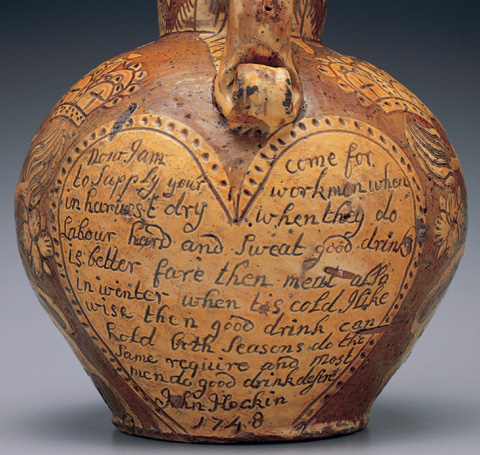 Now I am come for
to Supply your workmen when
in harvest dry when they do
Labour hard and Sweat good drink
is better fare then meat also
in winter when tis cold I like
wise then good drink can
hold both Seasons do the
Same require and most
men do good drink desire
John Hockin
1748